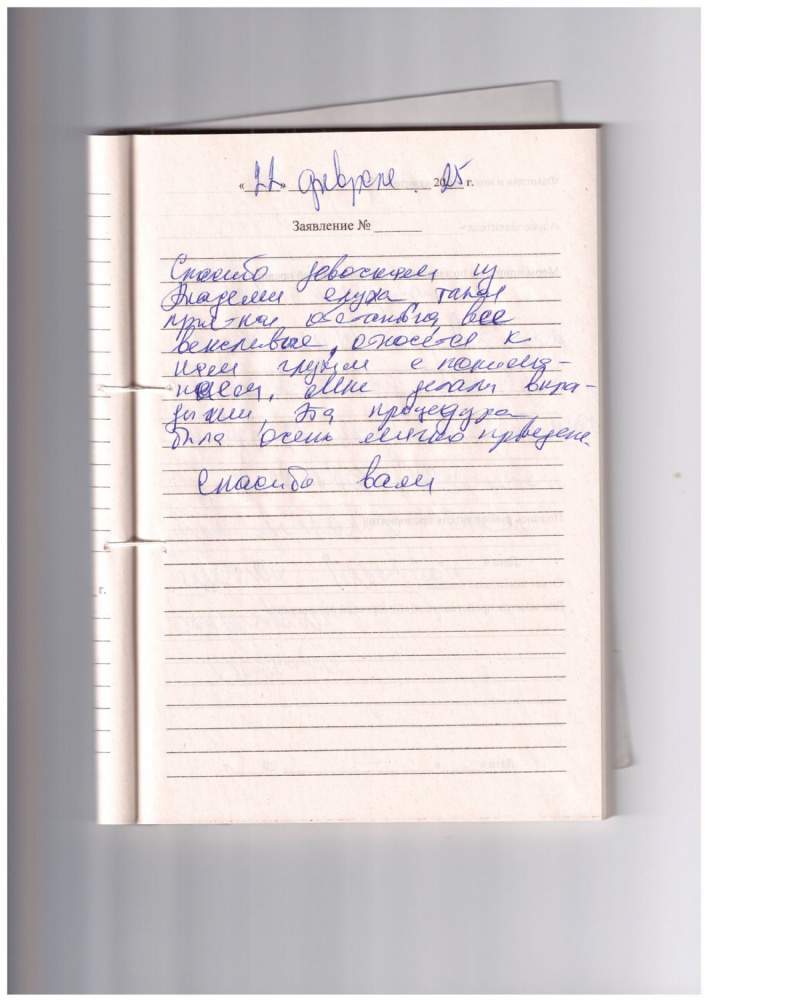 « 22 » февраля 2025 г.
Заявление №
Спасибо девочкам из
Академии слуха, такая
приятная обстановка, все
вежливые, относятся к
нам глухим с понима-
нием. Мне делали вкла-
дыши, эта процедура
была очень мягко проведена.
Спасибо вам
г.